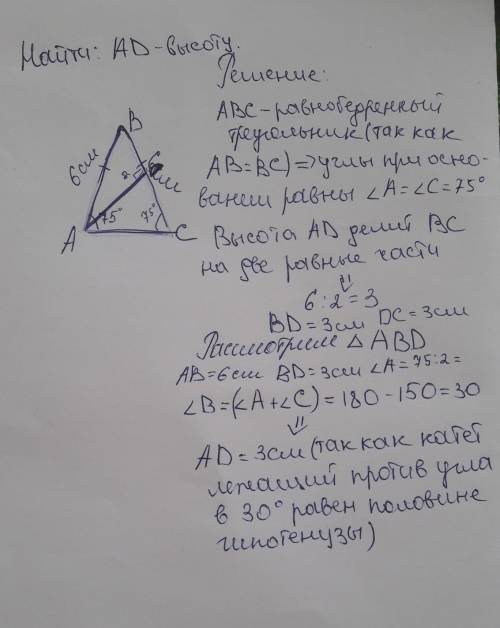 Найти: AD-высоту.
Решение:
ABC-равнобедренный
треугольник (так как
AB=BC)⇒углы при осно-
вании равны ∠A=∠C=75°
Высота AD делит BC
на две равные части
⇓
6:2=3
BD=3см DC=3см
Рассмотрим △ABD
AB=6см BD=3см ∠A=75:2=
∠B=(∠A+∠C)=180-150=30
⇓
AD=3см (так как катет
лежащий против угла
в 30° равен половине
гипотенузы)
B
6см
6см
75°
75°
A
C